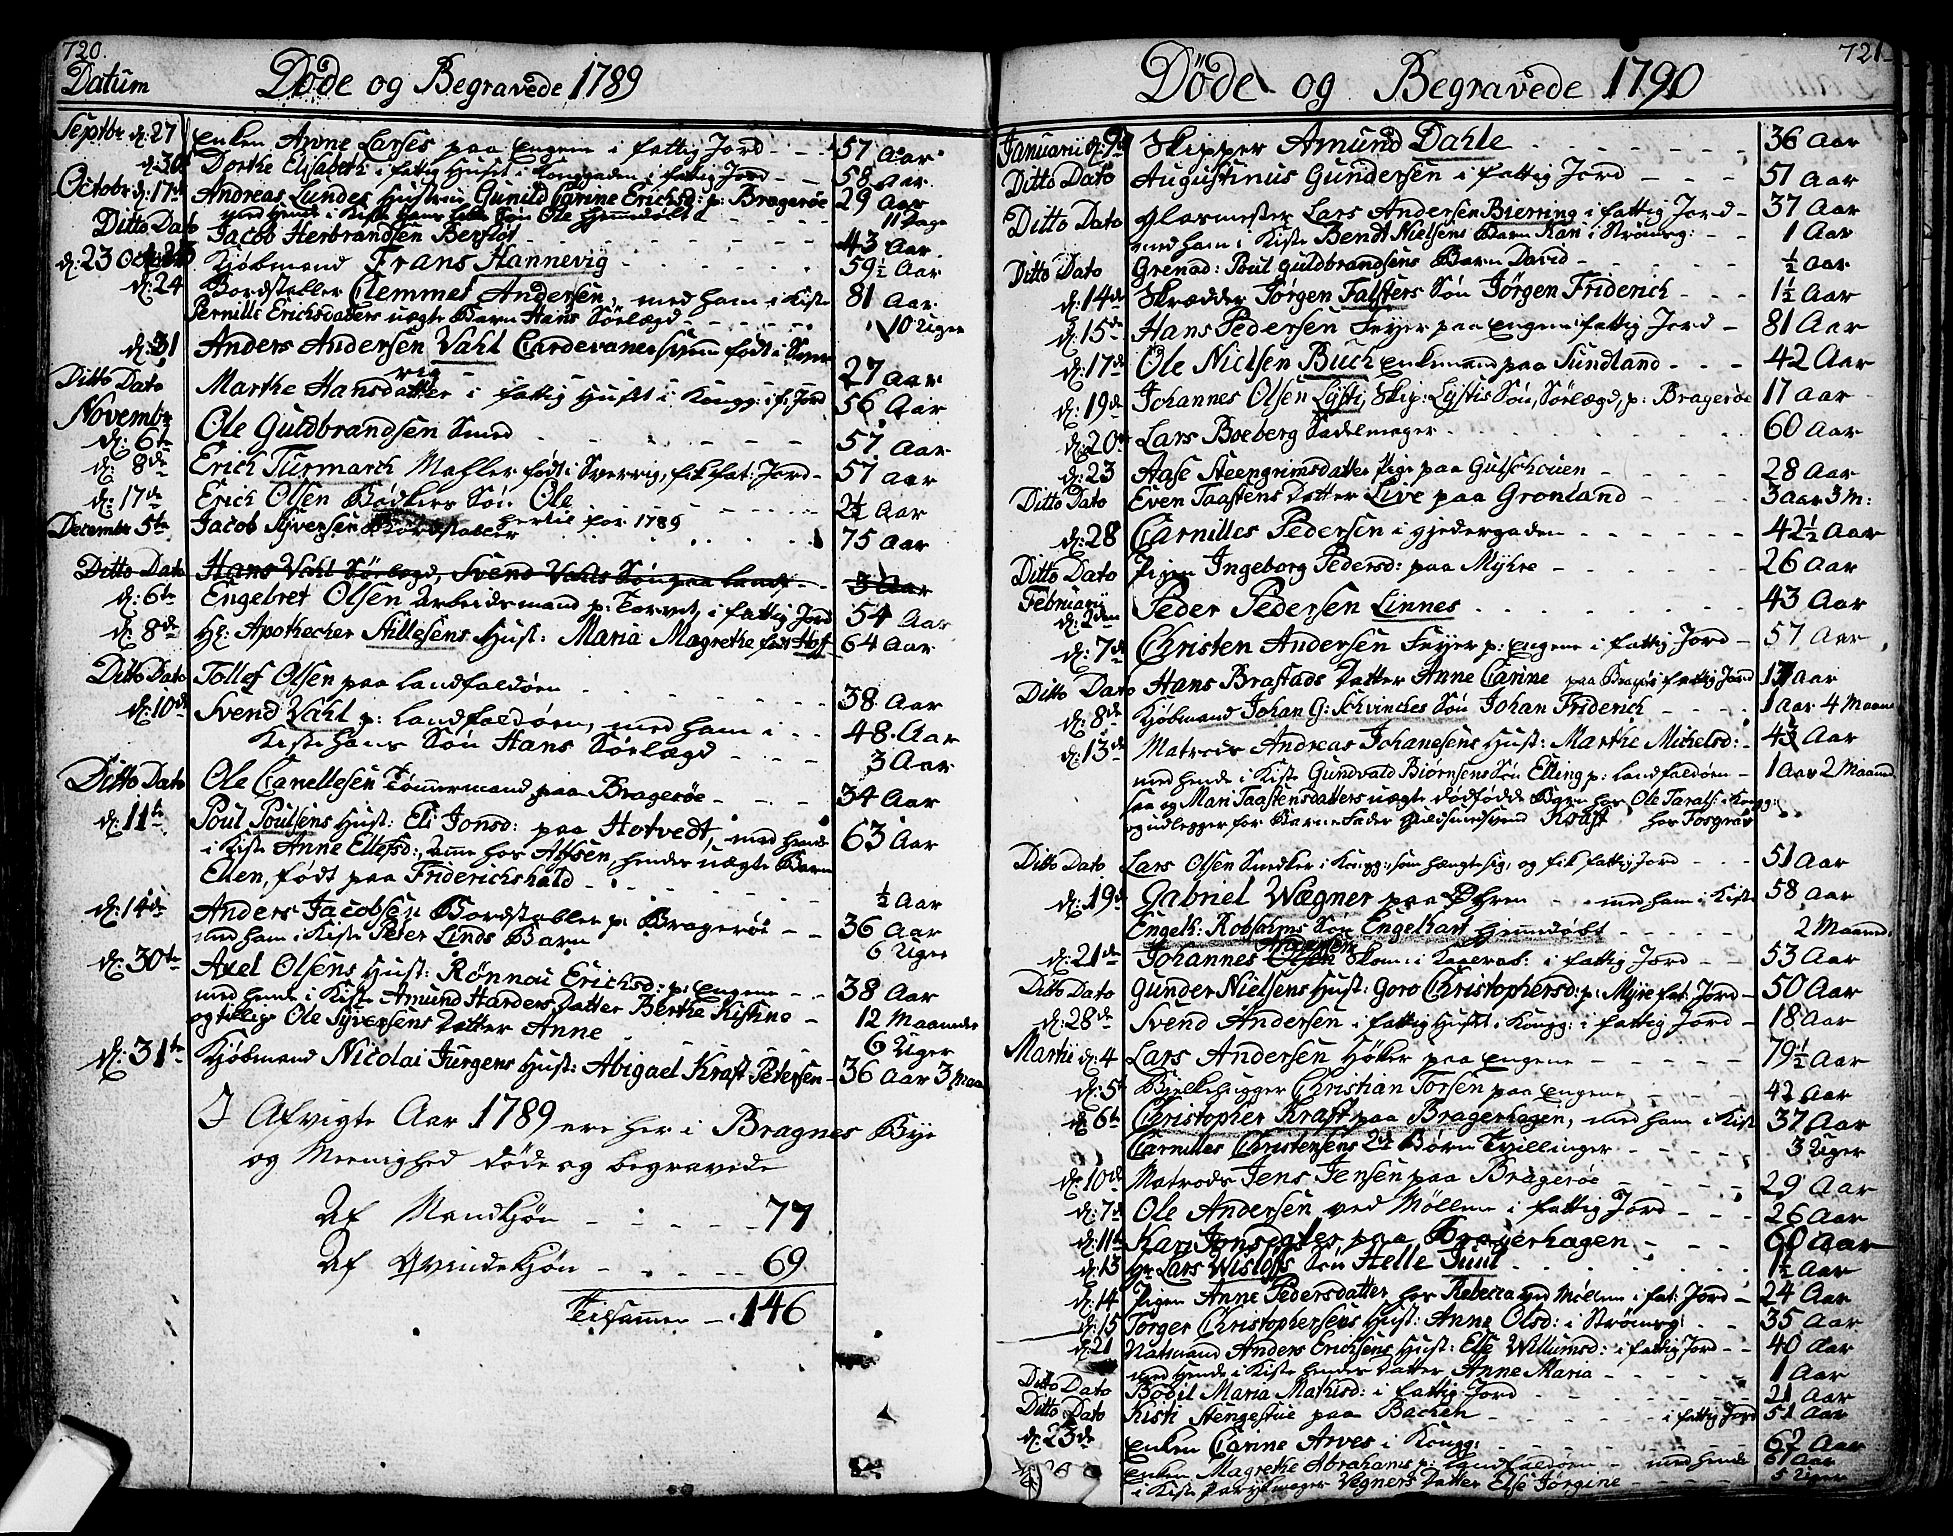 720.
Datum Døde og Begravede 1789
Septbr d: 27 Enken Anne Larses paa Engene i fattig Jord - - 57 Aar
d: 30 Dorthe Elisabeth i fattig Huset i Konggaden i fattig Jord - - 58 Aar
Octobr d: 17de Andreas Lundes Hustrue Gunild Carine Erichsd: p: Bragerøe 29 Aar
med hende i Kiste hans Søn Ole hjemmedøbt 11 Dage
Ditto Dato Jacob Herbrandsen Berslot 43 Aar
d: 23 Kjøbmand Frans Hannevig 59½ Aar
d: 24 Bordstabler Clemmet Andersen, med ham i Kiste 81 Aar
Pernille Erichsdatters uægte Barn Hans Sørlægd 10 Uger
d: 31 Anders Andersen Vahl Cardevanersvenn født i Sver
rig 27 Aar
Ditto Dato Marthe Hansdatter i fattig Huset i Kongg: i f: Jord 56 Aar
Novembr
d: 6te Ole Guldbrandsen Smed 57 Aar
d: 8de Erich Turmarck Mahler, født i Sverrig, fik fat: Jord 57 Aar
d: 17de Erich Olsen Bødkers Søn Ole 2¼ Aar
hertil for 1789
Decembr 5te Jacob Syversen Bordstabler 75 Aar
Ditto Dato Hans Vahl Sørlægd, Svend Vahls Søn paa Landf 3 Aar
d: 6te Engebret Olsen Arbeidsmand p: Torvet, i fattig Jord 54 Aar
d: 8de Hr: Apothecher Hillesens Hust: Maria Magrethe født Hoff 64 Aar
Ditto Dato Tollef Olsen paa Landfaldøen 38 Aar
d: 10de Svend Vahl p: Landfaldøen, med ham i 48 Aar
Kiste hans Søn Hans Sørlægd 3 Aar
Ditto Dato Ole Canellesen Tømmermand paa Bragerøe 34 Aar
d: 11te Poul Poulsens Hust: Eli Jonsd: paa Hotvedt, med hende 63 Aar
i Kiste Anne Ellefsd: Amme hos Alfsen, hendes uægte Barn
Ellen, født paa Friderichshald ½ Aar
d: 14de Anders Jacobsen Bordstabler p: Bragerøe 36 Aar
med ham i Kiste Peter Linds Barn 6 Uger
d: 30te Axel Olsens Hust: Rønnou Erichsd: p: Engene 38 Aar
med hende i Kiste Amund Harders Datter Berthe Kistine 12 Maaneder
og tillige Ole Syversens Datter Anne 6 Uger
d: 31te Kjøbmand Nicolai Jürgens Hust: Abigael Kraft Petersen 36 Aar 3 Maan
I Afvigte Aar 1789 ere her i Bragnes Bye
og Meenighed døde og begravede
Af Mandkjøn - - 77
Af Qvindekjøn - - 69
Tilsammen - 146
721
Døde og Begravede 1790
Januarii d: 7de Skipper Amund Dahle 36 Aar
Ditto Dato Augustinus Gundersen i fattig Jord 57 Aar
Ditto Dato Glasmester Lars Andersen Bierring i fattig Jord 37 Aar
med ham i Kiste Bendt Nielsens Barn Kari i Strømsg: 1 Aar
Ditto Dato Grenad: Poul Guldbrandsens Barn David ½ Aar
d: 14de Skrædder Jørgen Falsters Søn Jørgen Friderich 1½ Aar
d: 15de Hans Pedersen Feyer paa Engene i fattig Jord 81 Aar
d: 17de Ole Nielsen Buch Enkemand paa Sundland 42 Aar
d: 19de Johannes Olsen Lysti, Skip: Lystis Søn, Sørlægd, p: Bragerøe 17 Aar
d: 20de Lars Boeberg Sadelmager 60 Aar
d: 23 Aase Steengrimsdatter Pige paa Gulschouen 28 Aar
Ditto Dato Even Taastens Datter Live paa Grønland 3 Aar 3 M:
d: 28 Carnilles Pedersen i Gjedergaden 42½ Aar
Ditto Dato Pigen Ingeborg Pedersd: paa Myhre 26 Aar
Februarij
d: 2den Peder Pedersen Linnes 43 Aar
d: 7de Christen Andersen Feyer p: Engene i fattig Jord 57 Aar
Ditto Dato Hans Brastads Datter Anne Carine paa Bragerøe i fattig Jord 17 Aar
d: 8de Kjøbmand Johan G: Schvinches Søn Johan Friderich 1 Aar 4 Maan
d: 13de Matros Andreas Johanesens Hust: Marthe Michelsd: 43 Aar
med hende i Kiste Gundvald Biørnsens Søn Elling p: Landfaldøen 1 Aar 2 Maaned
saa og Mari Taastensdatters uægte dødfødde Barn hos Ole Taralds: i Kongg:
og udlegger for Barne Fader Guldsmedsvend Kraft hos Fosgrav
Ditto Dato Lars Olsen Smedker i Kongg: som hængte sig, og fik fattig Jord 51 Aar
d: 19de Gabriel Wægner paa Øhren med ham i Kiste 58 Aar
Engelh: Robsahms Søn Engelhart hjemmdøbt 2 Maaned
d: 21de Johannes Andersen Skom: i i fattig Jord 53 Aar
Ditto Dato Gunder Nielsens Hust: Goro Christophersd: p: Myre fat: Jord 50 Aar
d: 28de Svend Andersen i fattig Huset i Kongg: i fattig Jord 18 Aar
Martii d: 4 Lars Andersen Høker paa Engene 79½ Aar
d: 5te Bielkehugger Christian Torsen paa Engene 42 Aar
d: 6te Christopher Kraft paa Bragerhagen, med ham i Kist 37 Aar
Carnilles Christensens 2de Børn Tvillinger 3 Uger
d: 10de Matrods Jens Jensen paa Bragerøe 29 Aar
d: 7de Ole Andersen ved Møllene i fattig Jord 26 Aar
d: 11te Kari Jonsegtes paa Bragerhagen 60 Aar
d: 13 Hr: Lars Wisløffs Søn Helle Juul 1½ Aar
d: 14 Pigen Anne Pedersdatter hos Rebecca ved Møllene i fat: Jord 24 Aar
d: 15 Torger Christophersens Hust: Anne Olsd: i Strømsg: 35 Aar
d: 21 Natmand Anders Erichsens Hust: Else Willumsd: i fattig Jord 40 Aar
med hende i Kiste hendes Datter Anne Maria 1 Aar
Ditto Dato Bodil Maria Mathisd: i fattig Jord 21 Aar
Ditto Dato Kisti Stengestue paa Bachen i fattig Jord 51 Aar
d: 23de Enken Carine Arves i Kongg: 67 Aar
Enken Magrethe Abrahams p: Landfaldøen med hende 61 Aar
i Kiste Parykmager Vegners Datter Else Jørgine 5 Uger